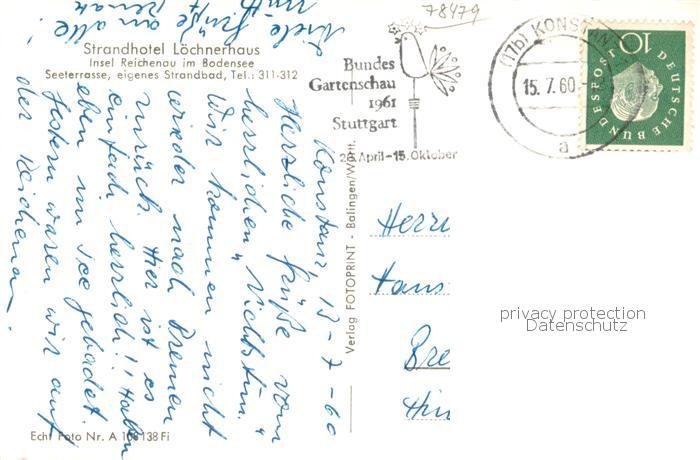 78479
Strandhotel Löchnerhaus
Insel Reichenau im Bodensee
Seeterrasse, eigenes Strandbad, Tel.: 311-312
Bundes
Gartenschau
1961
Stuttgart
26. April-15. Oktober
(17b) KONSTANZ
15.7.60.-
a
10
DEUTSCHE BUNDESPOST
Konstanz, 13-7-60
Herzliche Grüße vom
herrlichen "Nichtstun."
Wir kommen nicht
wieder nach Bremen
zurück. Hier ist es
einfach herrlich!! Haben
eben im See gebadet.
Gestern waren wir auf
der Reichenau!
Viele Grüße an alle!
Renate
Mutti
Herrn
Hans
Bre
Hin
Verlag FOTOPRINT - Balingen/Württ.
privacy protection
Datenschutz
Echt Foto Nr. A 108138 Fi